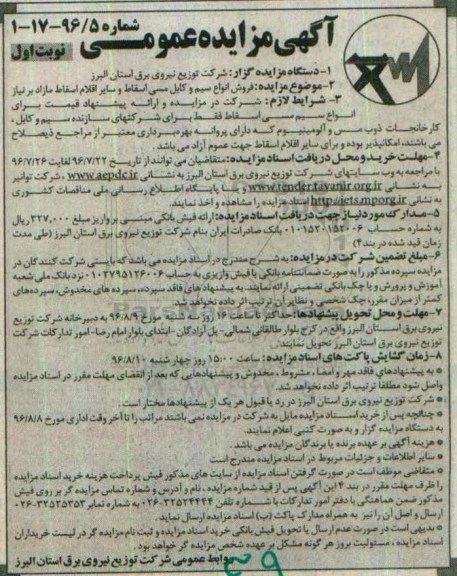 شماره ۹۶/۵-۱۷-۱
آگهی مزایده عمومی
نوبت اول
۱- دستگاه مزایده گزار: شرکت توزیع نیروی برق استان البرز
۲- موضوع مزایده: فروش انواع سیم و کابل مسی اسقاط و سایر اقلام اسقاط مازاد بر نیاز
۳- شرایط لازم: شرکت در مزایده و ارائه پیشنهاد قیمت برای
انواع سیم مسی اسقاط فقط برای شرکتهای سازنده سیم و کابل،
کارخانجات ذوب مس و آلومینیوم که دارای پروانه بهره‌برداری معتبر از مراجع ذیصلاح
می باشند، امکانپذیر بوده و برای سایر اقلام اسقاط جهت عموم آزاد می باشد.
۴- مهلت خرید و محل دریافت اسناد مزایده: متقاضیان می توانند از تاریخ ۹۶/۷/۲۲ لغایت ۹۶/۷/۲۶
با مراجعه به وب سایتهای شرکت توزیع نیروی برق استان البرز به نشانی www.aepdc.ir، شرکت توانیر
به نشانی www.tender.tavanir.org.ir و یا پایگاه اطلاع رسانی ملی مناقصات کشوری
به نشانی http://iets.mporg.ir اسناد مزایده را مشاهده و اخذ نمایند.
۵- مدارک مورد نیاز جهت دریافت اسناد مزایده: ارائه فیش بانکی مبتنی بر واریز مبلغ ۳۲۷,۰۰۰ ریال
به شماره حساب ۰۱۰۱۵۲۰۱۵۲۰۰۶ بانک صادرات ایران بنام شرکت توزیع نیروی برق استان البرز (طی مدت
زمان قید شده در بند ۴)
۶- مبلغ تضمین شرکت در مزایده: به شرح مندرج در اسناد مزایده می باشد که بایستی شرکت کنندگان در
مزایده سپرده مذکور را به صورت ضمانتنامه بانکی یا فیش واریزی به حساب ۰۱۰۲۷۹۵۱۲۶۰۰۶ نزد بانک ملی شعبه
آموزش و پرورش و یا چک بانکی تضمینی ارائه نمایند. به پیشنهاد های فاقد سپرده، سپرده های مخدوش، سپرده‌های
کمتر از میزان مقرر، چک شخصی و نظایر آن ترتیب اثر داده نخواهد شد.
۷- مهلت و محل تحویل پیشنهادها: حداکثر تا ساعت ۱۶ روز سه شنبه مورخ ۹۶/۸/۹ به دبیرخانه شرکت توزیع
نیروی برق استان البرز واقع در کرج بلوار طالقانی شمالی- پل آزادگان- ابتدای بلوار امام رضا- امور تدارکات شرکت
توزیع نیروی برق استان البرز تحویل نمایند.
۸- زمان گشایش پاکت های اسناد مزایده: ساعت ۱۵:۰۰ روز چهار شنبه ۹۶/۸/۱۰
* به پیشنهادهای فاقد مهر و امضا، مشروط، مخدوش و پیشنهادهایی که بعد از انقضای مهلت مقرر در اسناد مزایده
واصل شود مطلقا ترتیب اثر داده نخواهد شد.
* شرکت توزیع نیروی برق استان البرز در رد یا قبول هر یک از پیشنهادها مختار است.
* چنانچه پس از خرید اسناد مزایده مایل به شرکت در مزایده نمی باشند مراتب را تا آخر وقت اداری مورخ ۹۶/۸/۸
به دستگاه مزایده گزار و به صورت کتبی اعلام نمایند.
* هزینه آگهی بر عهده برنده یا برندگان مزایده می باشد.
* سایر اطلاعات و جزئیات مربوط در اسناد مزایده مندرج است
* متقاضی موظف است در صورت گرفتن اسناد مزایده از سایت های مذکور فیش پرداخت هزینه خرید اسناد مزایده
را ظرف مهلت مقرر در بند ۴ این آگهی پس از قید شماره مزایده، نام و آدرس و شماره تماس مزایده گر بر روی فیش
مذکور ضمن هماهنگی با دفتر امور تدارکات با شماره تلفن ۳۲۵۲۴۴۴۴-۰۲۶ به شماره نمابر ۳۲۵۲۵۳۵۳-۰۲۶
ارسال و اصل آن را نیز به همراه مدارک پاکت (ب) اسناد مزایده ارسال نماید.
* بدیهی است در صورت عدم ارسال یا تحویل فیش بانکی خرید اسناد مزایده و ثبت نام مزایده گر در لیست خریداران
اسناد مزایده، مسئولیت بروز هر گونه مشکل بر عهده شخص مزایده گر خواهد بود.
روابط عمومی شرکت توزیع نیروی برق استان البرز